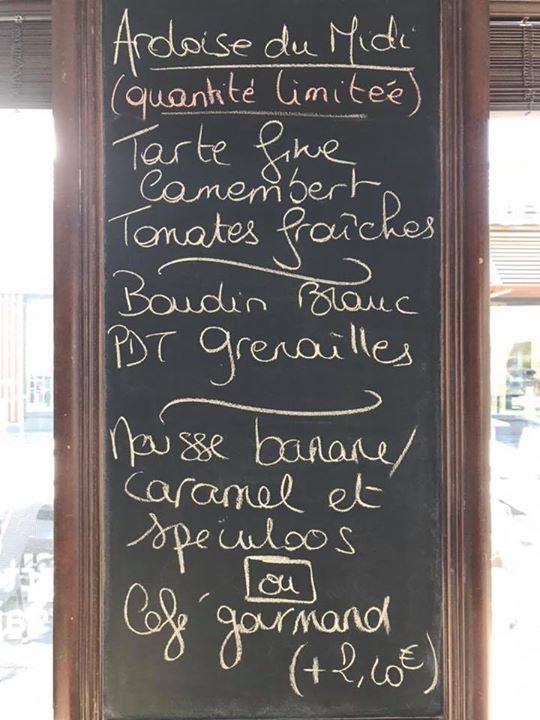 Ardoise du Midi
(quantité limitée)
Tarte fine
Camembert
Tomates fraîches
Boudin Blanc
PDT Grenailles
Mousse banane/
caramel et
spéculoos
ou
Café gourmand
(+2,10€)